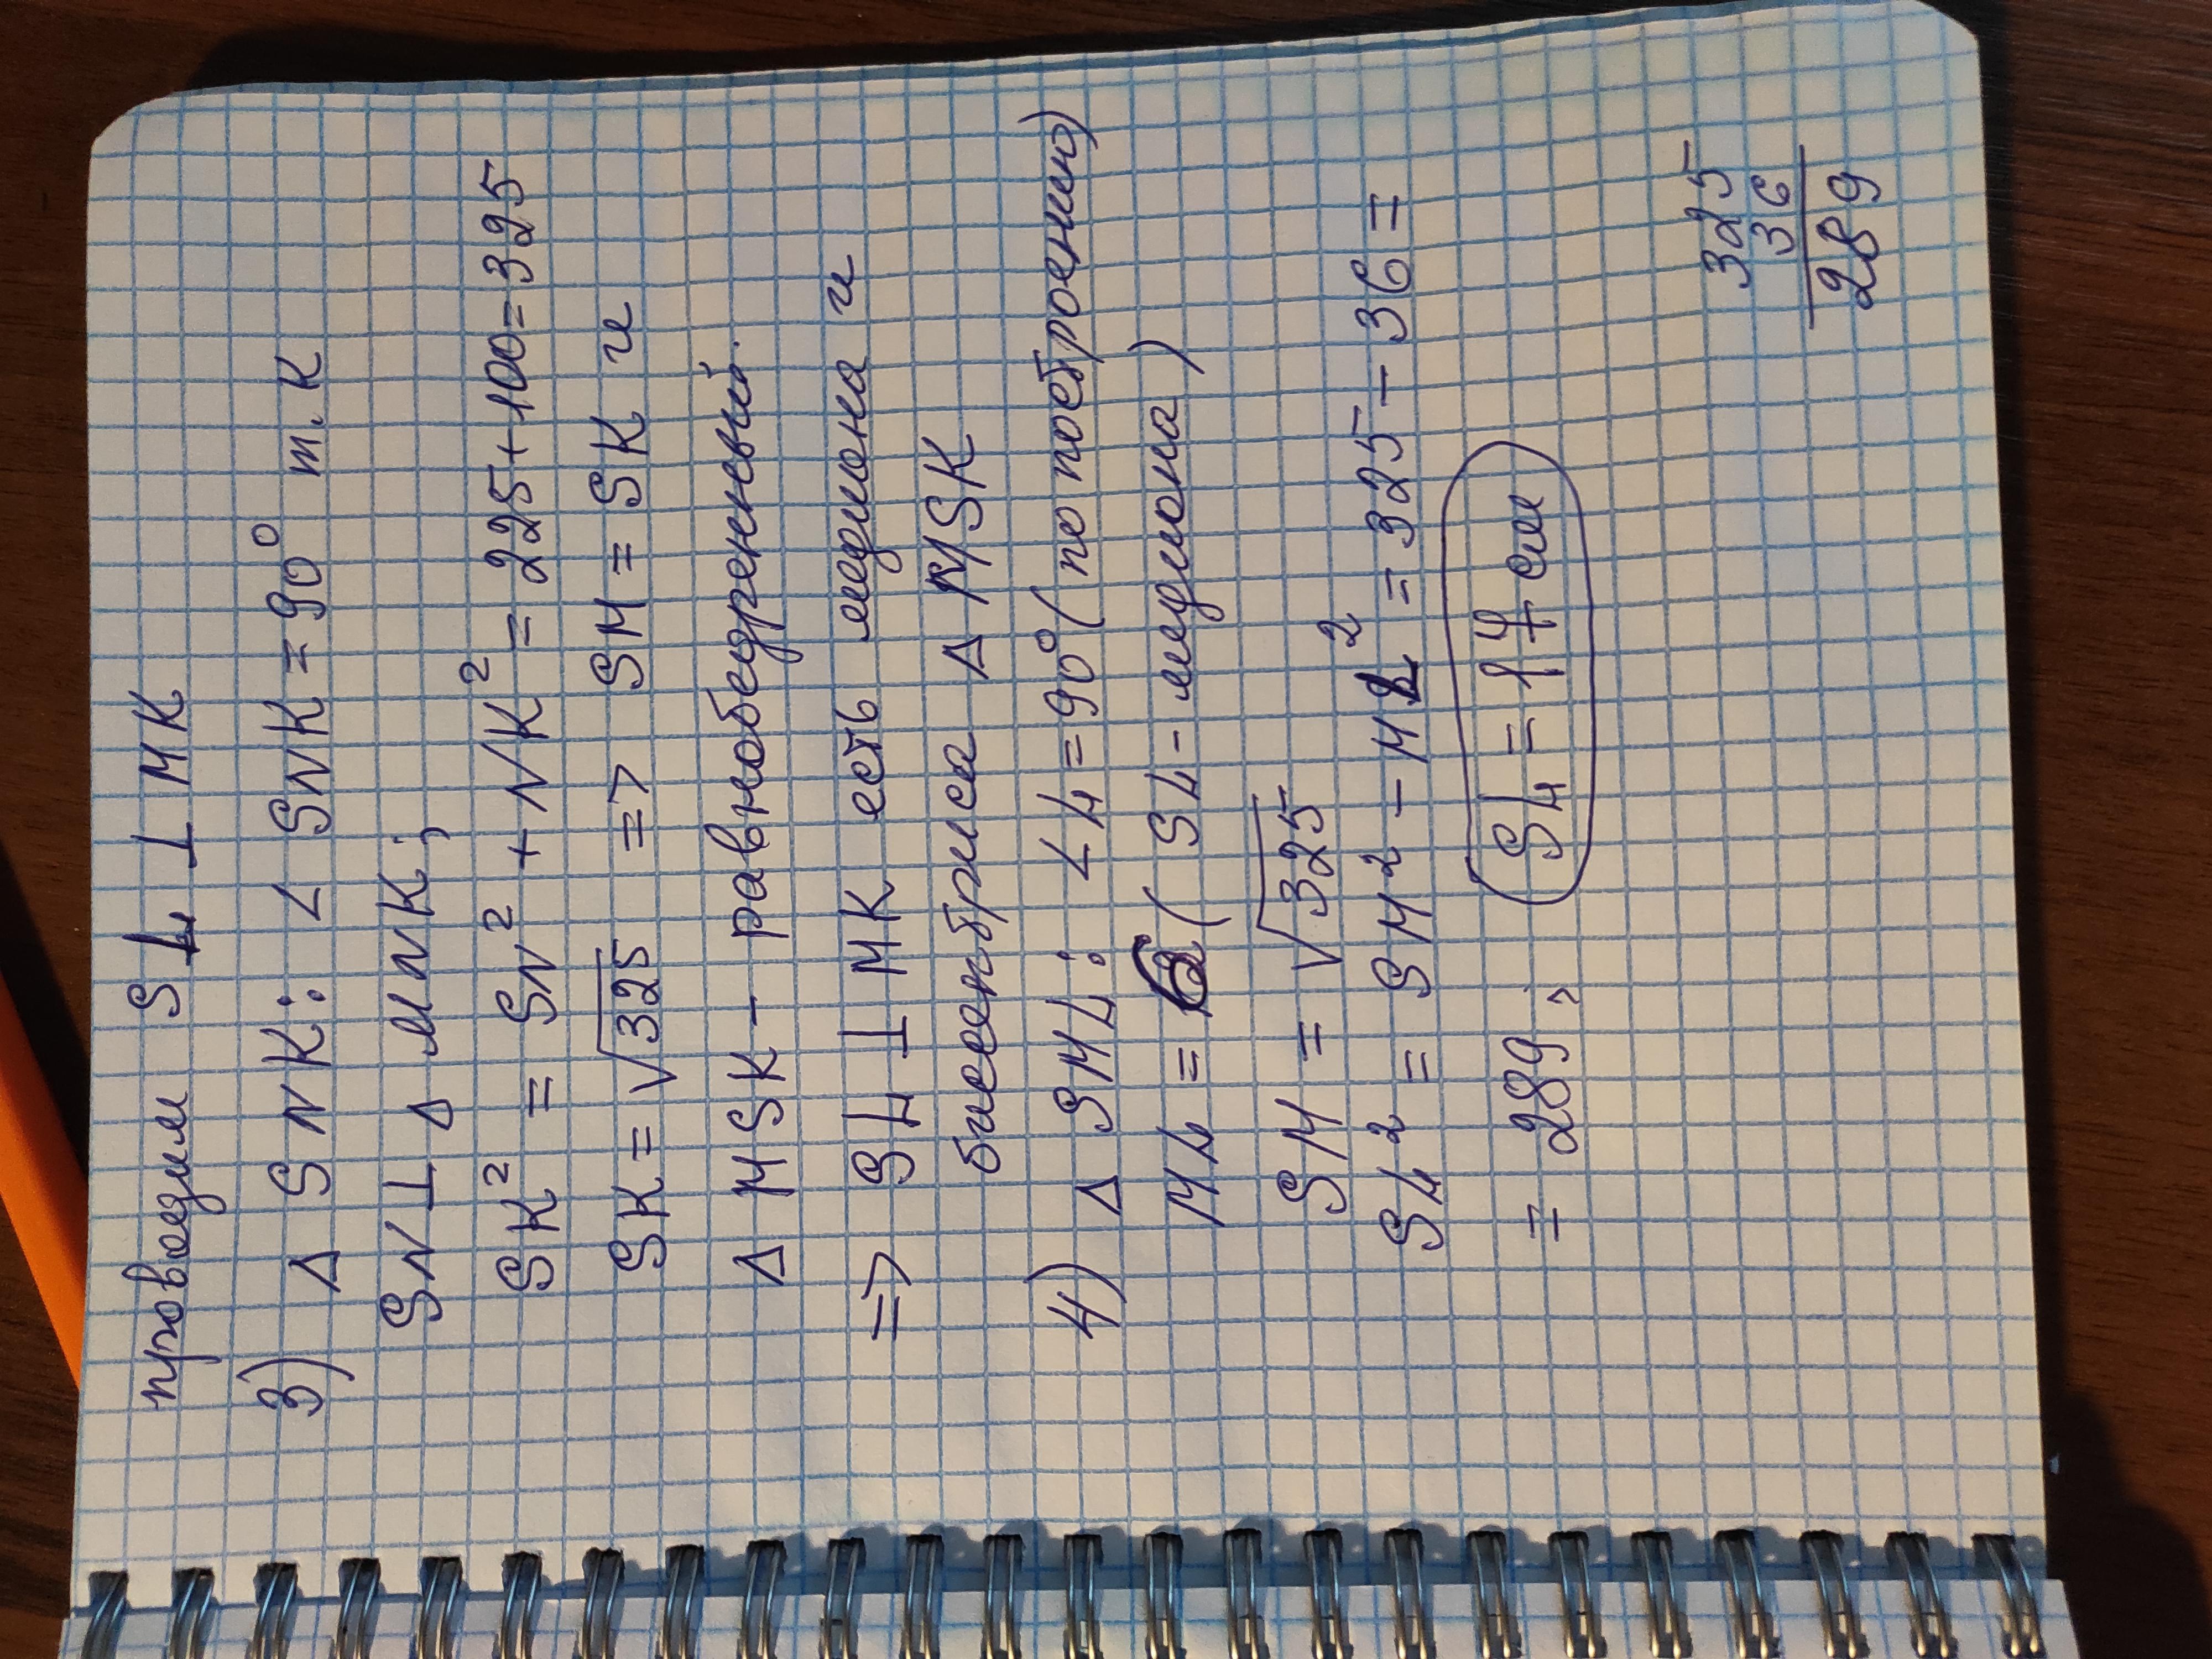 проведем SL ⊥ MK
3) Δ SNK: ∠ SNK = 90° т. к
SN ⊥ Δ MNK;
SK² = SN² + NK² = 225 + 100 = 325
SK = √325 => SM = SK и
Δ MSK - равнобедренный.
=> SL ⊥ MK есть медиана и
биссектриса Δ MSK
4) Δ SML: ∠ L = 90° (по построению)
ML = 6 (SL - медиана)
SM = √325
SL² = SM² - ML² = 325 - 36 =
= 289, SL = 17 см
325
36
289